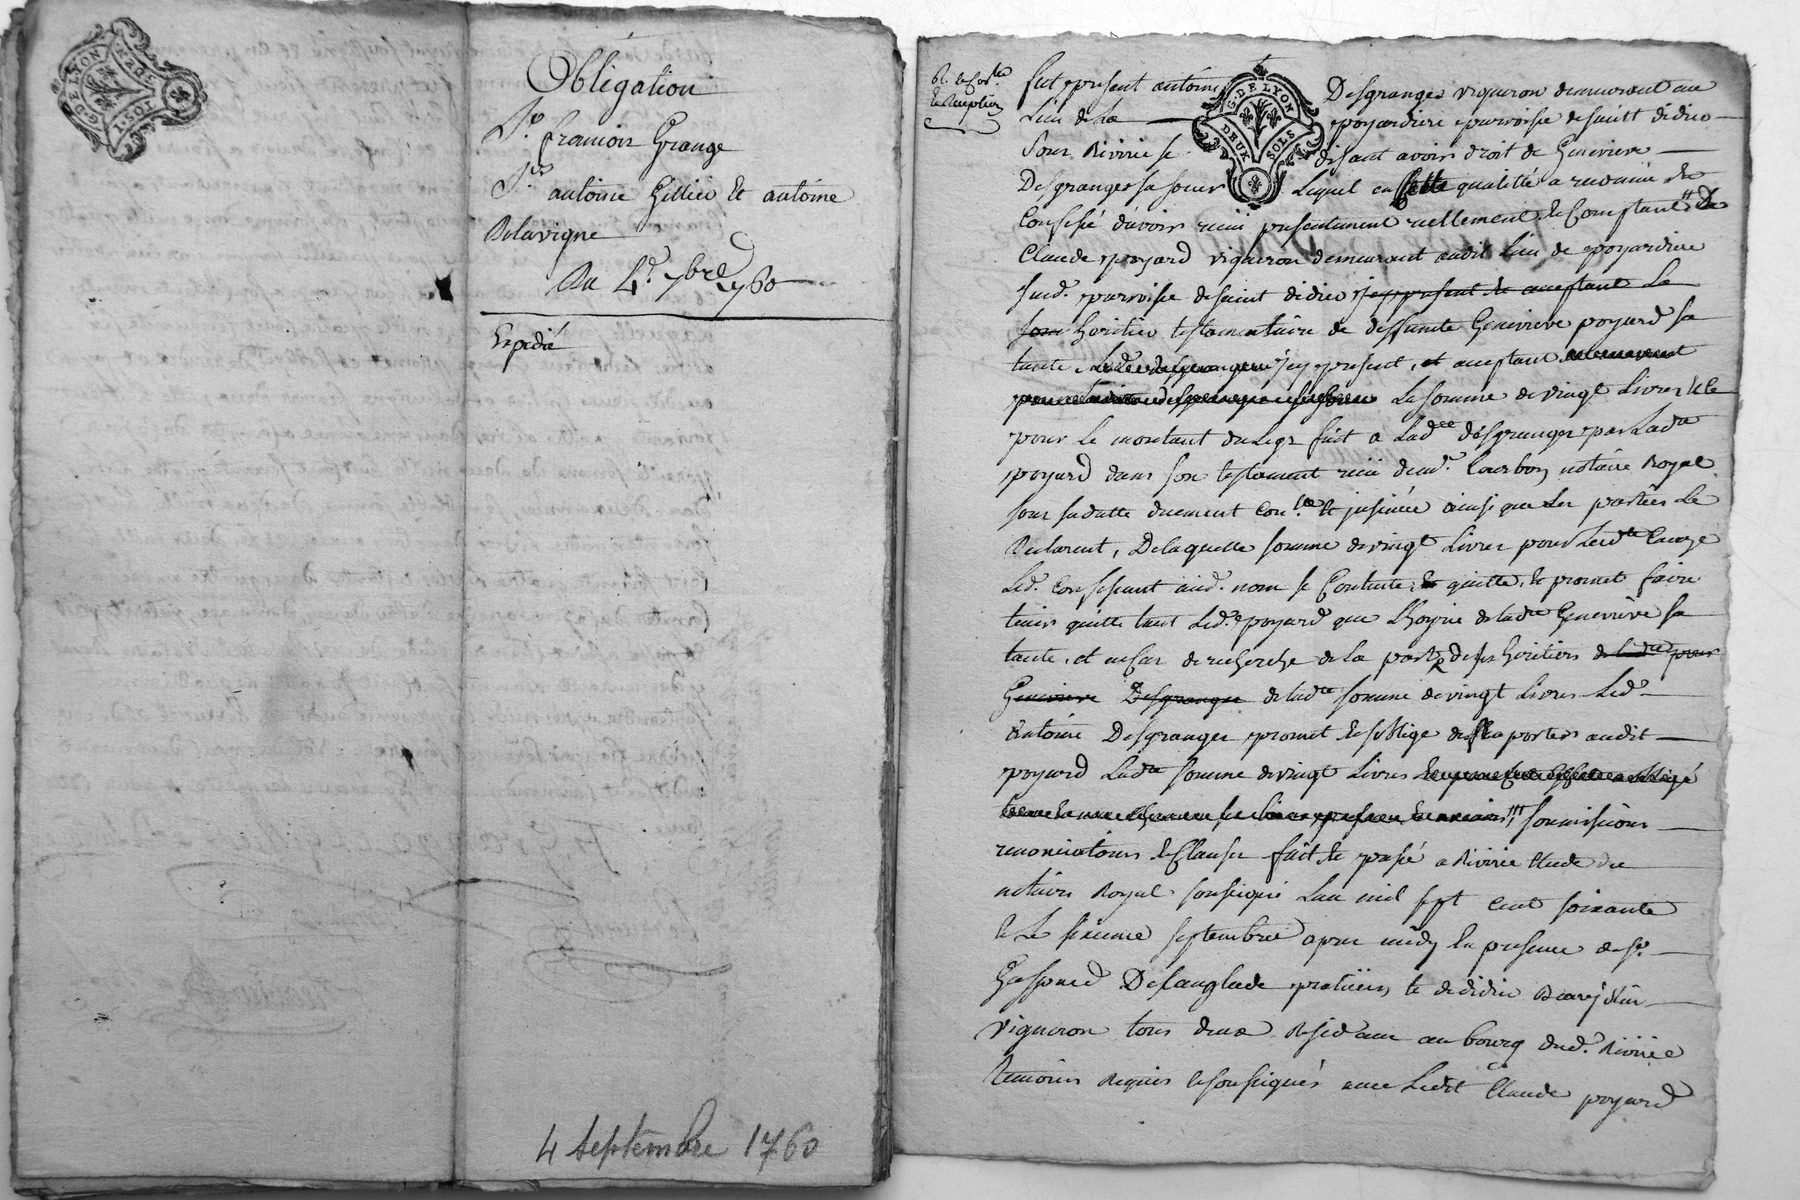 G. DE LYON
DEUX SOLS
Obligation
Sr francois Grange
Srs
antoine Gillier et antoine
Delavigne
Du 4e. 7bre 1760
Expedié
4 septembre 1760
fut present antoine Desgranges vigneron demeurant au
G. DE LYON
DEUX SOLS
Lieu de La poyardiere parroisse de saint didier
sous Rivirie se disant avoir droit de Genevieve
Desgranges sa soeur Lequel en cette qualitté a reconnu et
Confessé d'avoir receu presentement reellement et Comptant de
Claude poyard vigneron demeurant audit Lieu de poyardiere
susd. parroisse de saint didier icy present et acceptant La
heritier testamentaire de deffunte Genevieve poyard sa
tante icy present, et acceptant
La somme de vingt Livres et ce
pour Le montant du Legs fait a Lad. desgranges par Ladte
poyard dans son testament receu dud. notaire Royal
sous sa datte duement et insinuée ainsi que Les parties Le
Declarent, De laquelle somme de vingt Livres pour
Led. Confessant aud. nom se Contente, et quitte, et promet faire
tenir quitte tant Led. poyard que L'hoyrie de ladte Genevieve sa
tante, et en cas de recherche de la part des heritiers de ladte
Genevieve Desgranges de ladte somme de vingt Livres Led.
Antoine Desgranges promet et s'oblige de porter audit
poyard Ladte somme de vingt Livres
soumissions
renonciations et Clauses fait et passé a Rivirie Etude du
notaire Royal soussigné L'an mil sept cent soixante
et Le sixieme septembre apres midy En presence de sr.
Gaspard Desanglade praticien et de didier
vigneron tous deux Residant au bourg dud. Riviriee
temoins Requis et soussignés avec Ledit Claude poyard